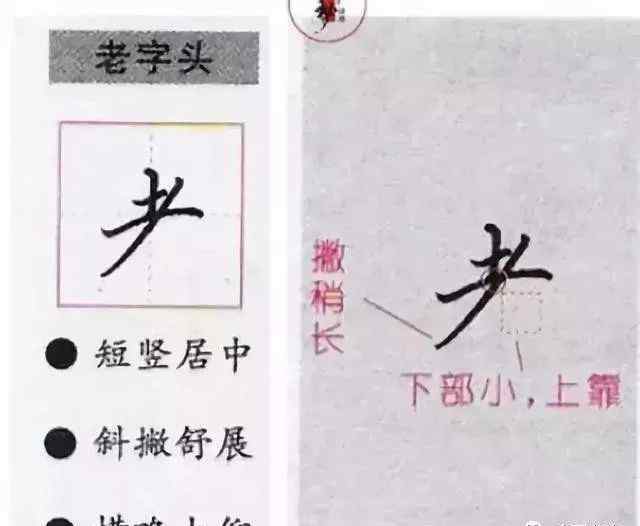 老字头
耂
● 短竖居中
● 斜撇舒展
耂
撇稍长
下部小，上靠